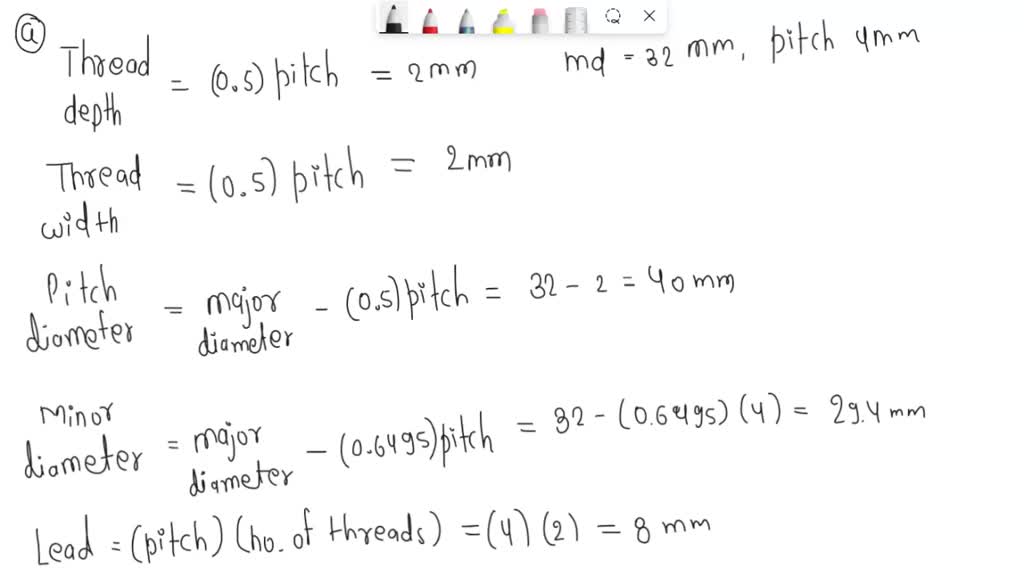 a
Thread depth = (0.5) pitch = 2mm
md = 32 mm, pitch 4mm
Thread width = (0.5) pitch = 2mm
Pitch diameter = major diameter - (0.5) pitch = 32 - 2 = 40 mm
Minor diameter = major diameter - (0.6495) pitch = 32 - (0.6495) (4) = 29.4 mm
Lead = (pitch) (no. of threads) = (4) (2) = 8 mm